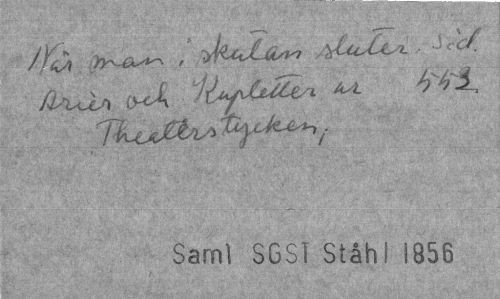 När man i skutan sluter. Sid.
Arier och Kupletter ur 553
Theaterstycken,
Saml SGST Ståhl 1856